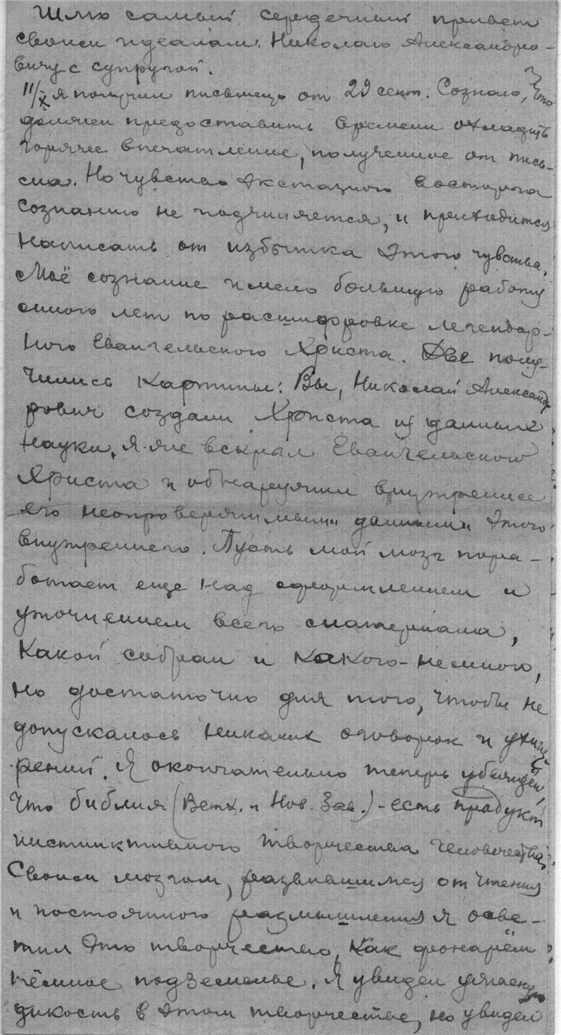 Шлю самый сердечный привет
своим идеалам. Николаю Александро-
вичу с супругой.
11/X я получил письмецо от 29 сент. Сознаю, что
должен предоставить времени охладить
горячее впечатление, полученное от пись-
ма. Но чувство экстазного восторга
сознанию не подчиняется, и приходится
написать от избытка этого чувства.
Моё сознание имело большую работу
много лет по расшифровке легендар-
ного Евангельского Христа. Две полу-
чились картины: Вы, Николай Александ-
рович создали Христа из данных
науки, я же вскрыл Евангельского
Христа и обнаружил внутреннее
его неопровержимыми данными этого
внутреннего. Пусть мой мозг пора-
ботает еще над оформлением и
уточнением всего материала,
какой собран и какого немного,
но достаточно для того, чтобы не
допускалось никаких оговорок и ухищ-
рений. Я окончательно теперь убежден,
что библия (Ветх. и Нов. Зав.) - есть продукт
инстинктивного творчества человечества.
Своим мозгом, развившимся от чтения
и постоянного размышления я осве-
тил это творчество, как фонарём
тёмное подземелье. Я увидел ужасную
дикость в этом творчестве, но увидел